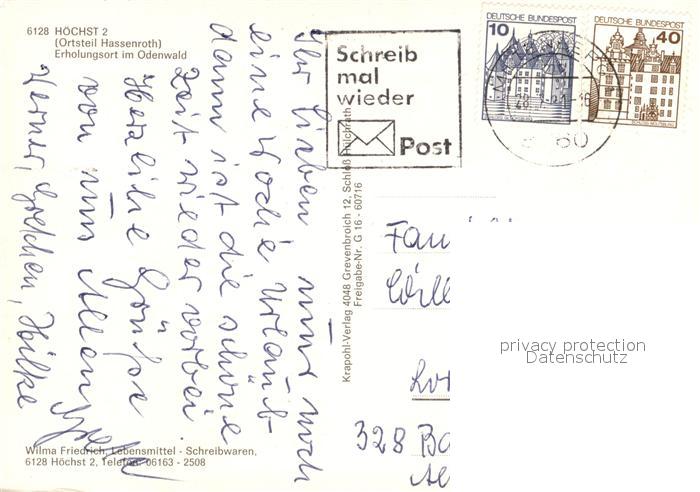 6128 HÖCHST 2
(Ortsteil Hassenroth)
Erholungsort im Odenwald
Ihr Lieben
nur noch
eine Woche Urlaub
dann ist die schöne
Zeit wieder vorbei.
Herzliche Grüße
von uns Allen
Werner, Gretchen, Hilke
Wilma Friedrich, Lebensmittel - Schreibwaren,
6128 Höchst 2, Telefon: 06163 - 2508
Krapohl-Verlag 4048 Grevenbroich 12, Schloß Hülchrath
Freigabe-Nr. G 16 - 60716
Schreib
mal
wieder
Post
10
DEUTSCHE BUNDESPOST
DEUTSCHE BUNDESPOST
40
Fam
328 Ba
privacy protection
Datenschutz